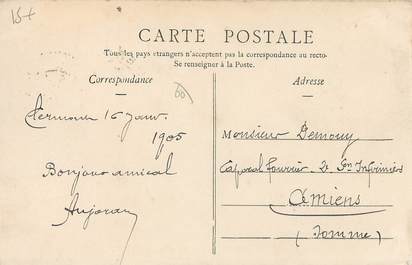 15+
CARTE POSTALE
Tous les pays étrangers n'acceptent pas la correspondance au recto.
Se renseigner à la Poste.
Correspondance
60
Adresse
Clermont 16 Janv.
1905
Bonjour amical
Monsieur Demouy
Caporal fourrier 2e Son Infirmiers
Amiens
(Somme)